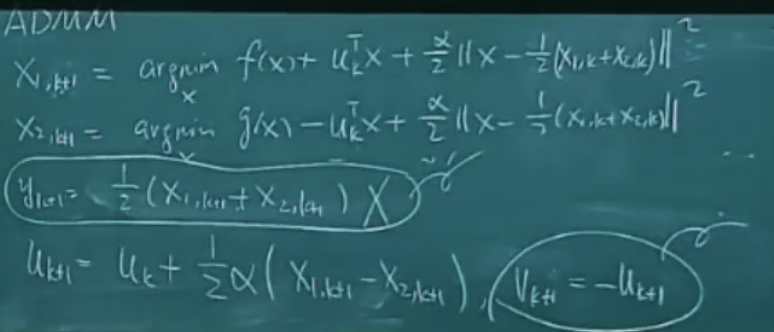 ADMM
X₁,ₖ₊₁ = argmin_x f(x) + uₖᵀx + α/2 ||x - 1/2(x₁,ₖ + x₂,ₖ)||²
X₂,ₖ₊₁ = argmin_x g(x) - uₖᵀx + α/2 ||x - 1/2(x₁,ₖ + x₂,ₖ)||²
yₖ₊₁ = 1/2 (x₁,ₖ₊₁ + x₂,ₖ₊₁) X
uₖ₊₁ = uₖ + 1/2 α(x₁,ₖ₊₁ - x₂,ₖ₊₁), vₖ₊₁ = -uₖ₊₁